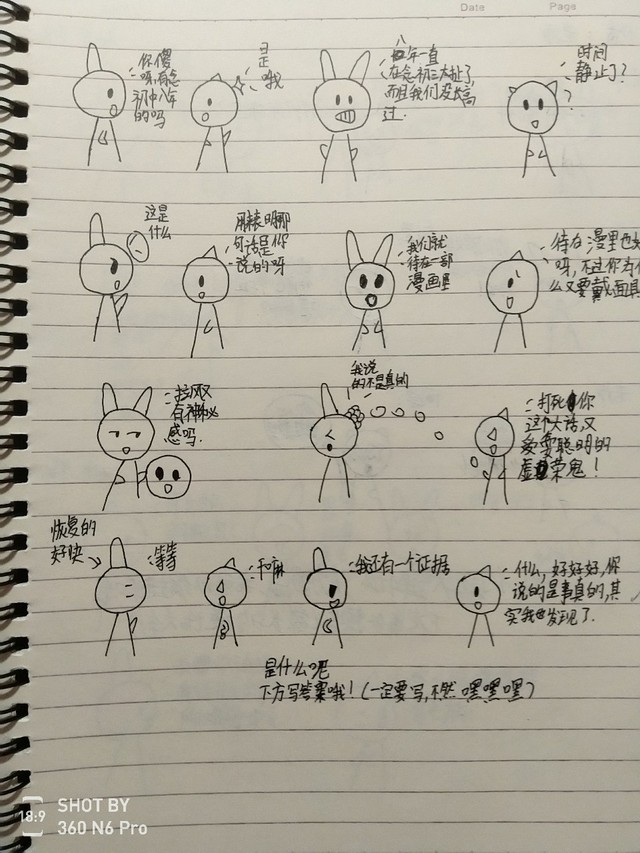 Date Page
你傻
呀,有念
初中八年
的吗
是
哦
八
年一直
在念初三太扯了
而且我们没长高
过.
时间
静止了?
?
这是
什么
用表明那
句话是你
说的呀
我们就
待在一部
漫画里
待在漫里也好
呀,不过你为什
么又要戴面具
拉风又
有神秘
感吗.
我说
的不是真的
打死你
这个大话,又
爱耍聪明的
虚荣鬼!
恢复的
好快
等等
干嘛
我还有一个证据
什么,好好好,你
说的是事真的,其
实我也发现了.
是什么呢
下方写答案哦!(一定要写,不然嘿嘿嘿)
18:9
SHOT BY
360 N6 Pro